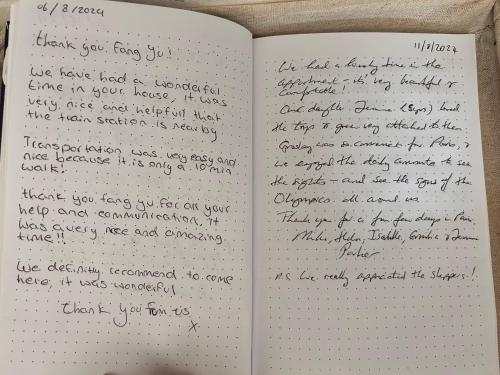 06/8/2024
thank you, Fang Yu!
We have had a wonderful
time in your house, it was
very nice and helpfull that
the train station is nearby
Transportation was very easy and
nice because it is only a 10 min
walk!
thank you fang yu for all your
help and communication, it
was a very nice and amazing
time!!
We definitly recommend to come
here, it was wonderful
thank you from us
x
11/8/2024
We had a lovely time in the
appartment - it's very beautiful &
comfortable!
Our daughter (5yrs) loved
the toys & grew very attached to them
was so convenient for Paris, &
we enjoyed the daily commute to see
the sights - and see the signs of the
Olympics all around us.
Thank you for a fun few days in Paris
Mike, Helen, Isabelle, &
Parker
P.S. We really appreciated the slippers!